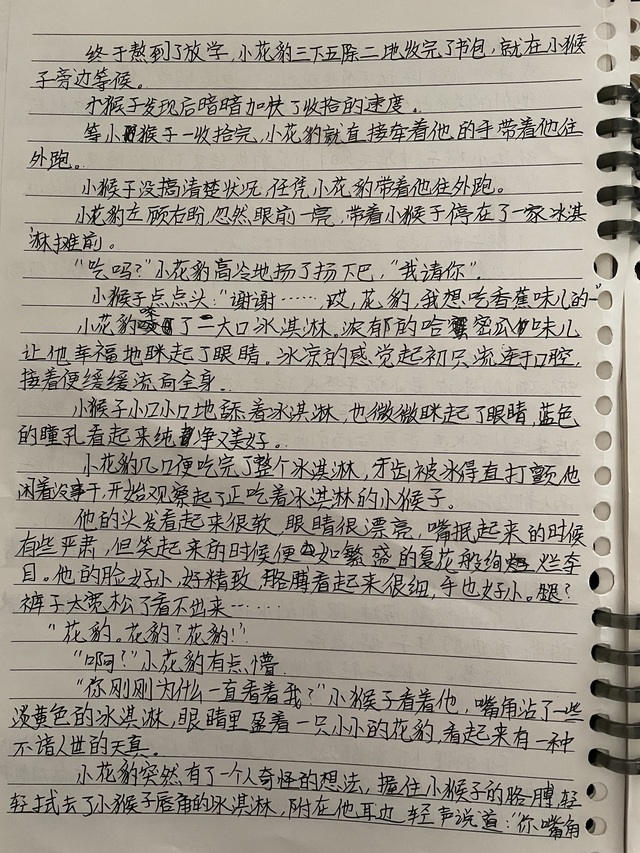 终于熬到了放学,小花豹三下五除二地收完了书包,就在小猴
子旁边等候。
小猴子发现后暗暗加快了收拾的速度。
等小猴子一收拾完,小花豹就直接牵着他的手带着他往
外跑。
小猴子没搞清楚状况,任凭小花豹带着他往外跑。
小花豹左顾右盼,忽然眼前一亮,带着小猴子停在了一家冰淇
淋摊前。
“吃吗?”小花豹高冷地扬了扬下巴,“我请你”.
小猴子点点头:“谢谢……哎,花豹,我想吃香蕉味儿的—”
小花豹嗷了一大口冰淇淋。浓郁的哈密瓜味儿
让他幸福地眯起了眼睛。冰凉的感觉起初只流连于口腔,
接着便缓缓流向全身.
小猴子小口小口地舔着冰淇淋,也微微眯起了眼睛,蓝色
的瞳孔看起来纯净又美好。
小花豹几口便吃完了整个冰淇淋,牙齿被冰得直打颤,他
闲着没事干,开始观察起了正吃着冰淇淋的小猴子。
他的头发看起来很软,眼睛很漂亮,嘴抿起来的时候
有些严肃,但笑起来的时候便如繁盛的夏花般绚烂夺
目。他的脸好小,好精致,胳膊看起来很细,手也好小。腿?
裤子太宽松了看不出来……
“花豹。花豹?花豹!”
“啊?”小花豹有点懵.
“你刚刚为什么一直看着我?”小猴子看着他,嘴角沾了一些
淡黄色的冰淇淋,眼睛里盈着一只小小的花豹,看起来有一种
不谙人世的天真。
小花豹突然有了一个奇怪的想法,握住小猴子的胳膊,轻
轻拭去了小猴子唇角的冰淇淋,附在他耳边,轻声说道:“你嘴角